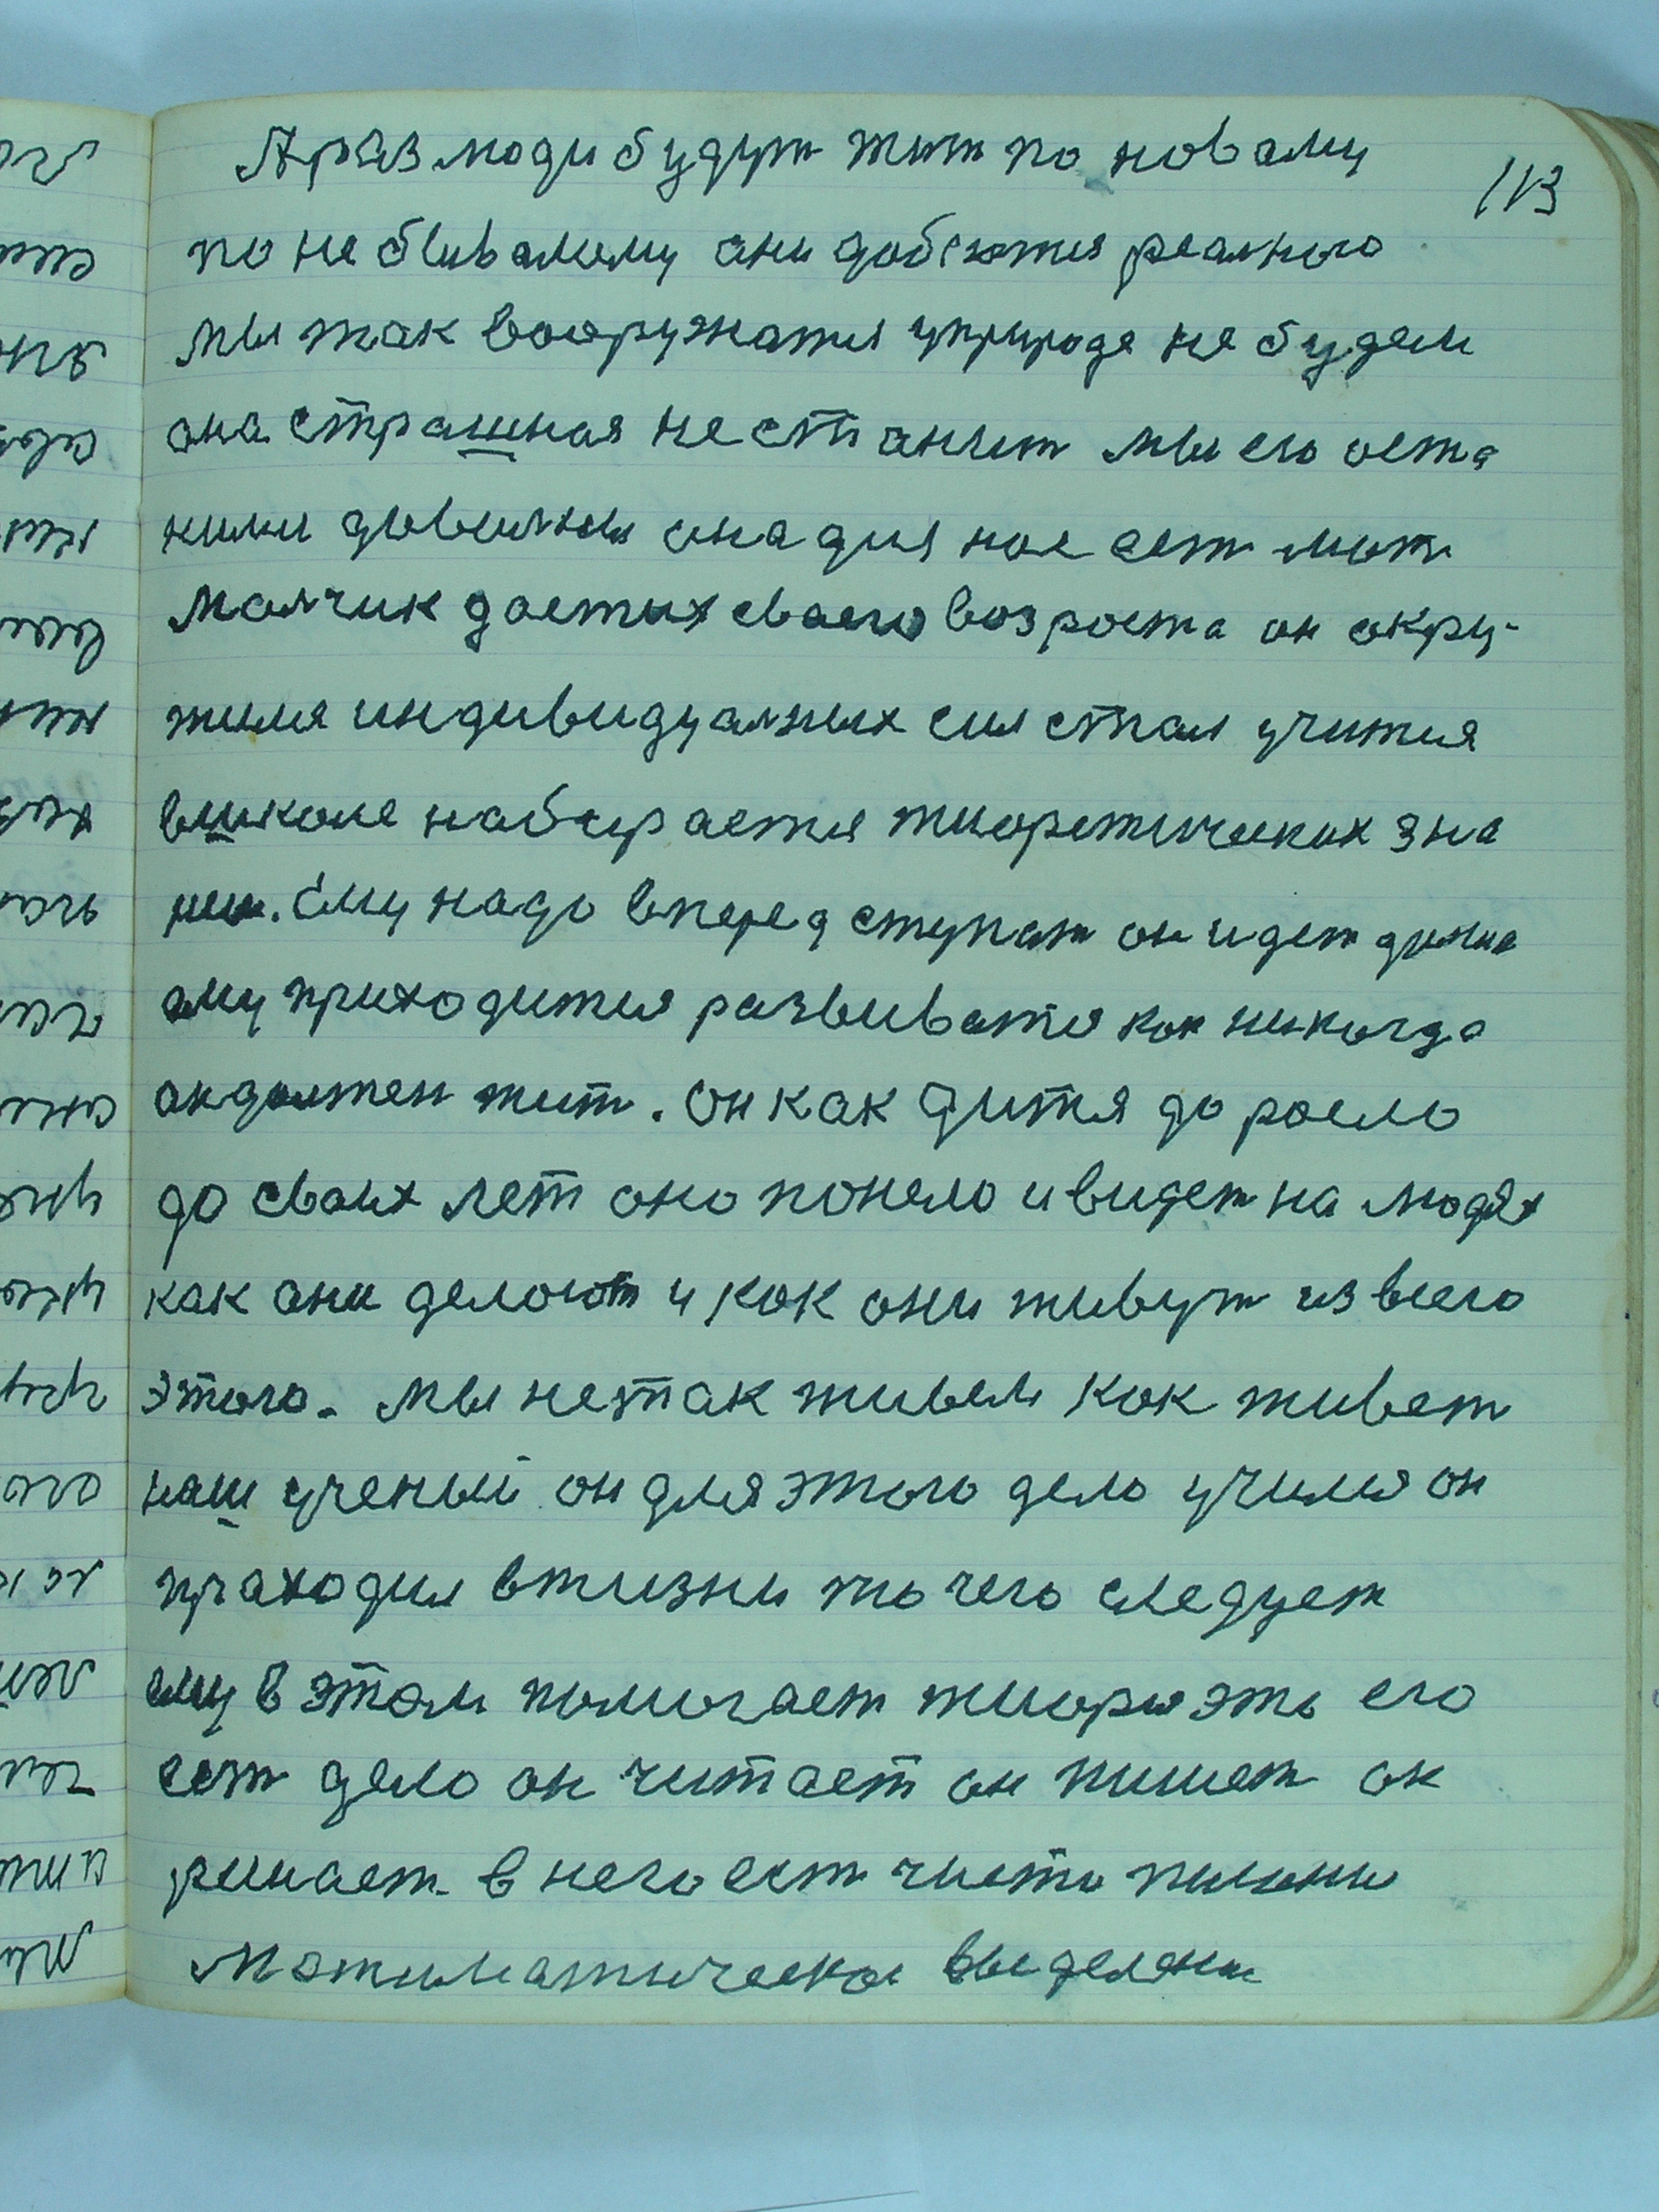 А раз люди будут жит по новаму
113
по не бывалому они добютея реалного
мы так вооружатся уприроде не будем
она страшная не станит мы его оста
ними доволни она для нас ест мат
Малчик достих сваего возроста он окру-
жился индивидуалных сил стал учится
вшколе набирается тиоретических зна
ний. Ему надо вперед ступат он идет
ему приходится развиватся как никогда
ондолжен жит. Он как дитя до росло
до сваих лет оно поняло ивидет на людях
как они делоют и как они живут из всего
этого. Мы нетак живем как живет
наш ученый он для этого дело учился он
праходил вжизни то чего следует
ему в этом помогает тиория это его
ест дело он читает он пишет он
ришает в него ест чисто
Матиматическое выделени